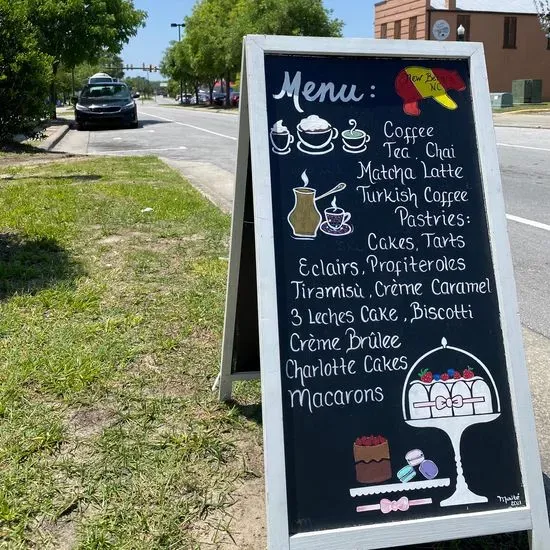 Menu:
New Bern
NC
Coffee
Tea, Chai
Matcha Latte
Turkish Coffee
Pastries:
Cakes, Tarts
Eclairs, Profiteroles
Tiramisù, Crème Caramel
3 Leches Cake, Biscotti
Crème Brûlee
Charlotte Cakes
Macarons
2021